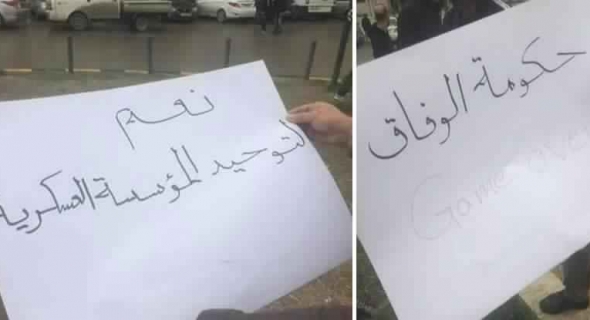 نعم
لتوحيد المؤسسة العسكرية
حكومة الوفاق
Game over